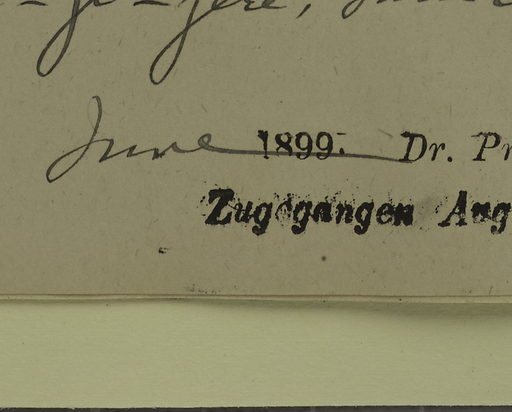 June 1899. Dr. Pr
Zugegangen Aug